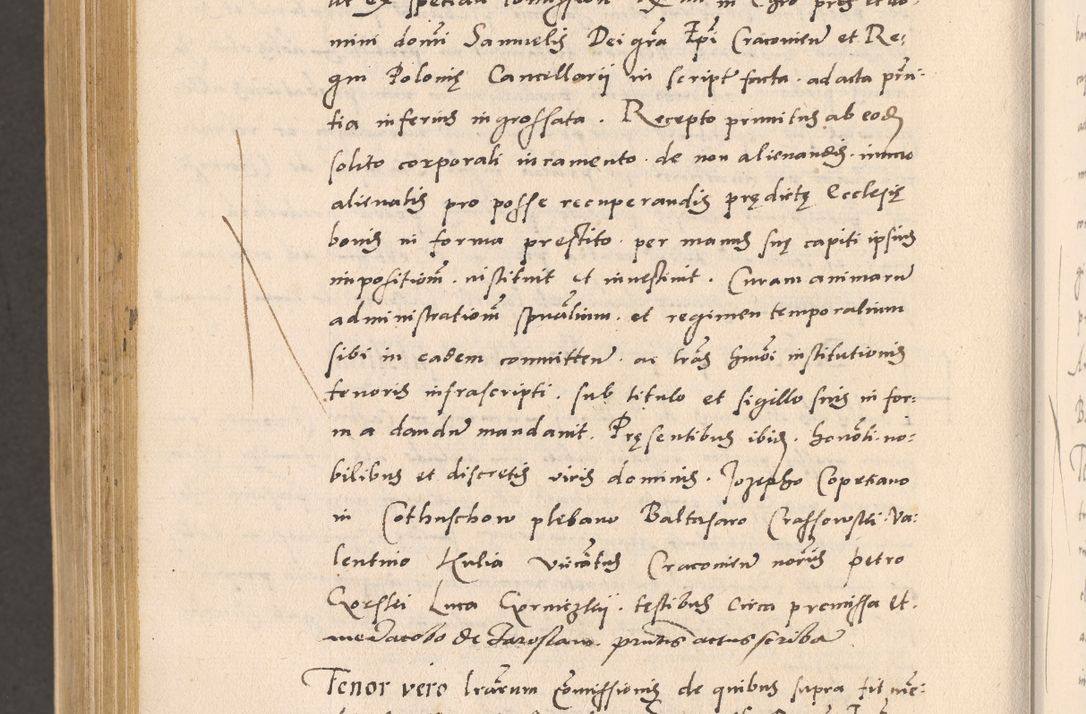 mini domni Samuelis Dei gra Epi Cracovien et Re:
gni Polonię Cancellarii in script facta . ad acta prn:
tia inferius ingrossata . Recepto primitus ab eod
solito corporali iuramento . de non alienandis . immo
alienatis pro posse recuperandis prędictę Ecclesię
bonis in forma prestito . per manus suę capiti ipsius
impositionem . instituit et investivit . Curam animarum
administrationem spualium . et regimen temporalium
sibi in eadem committen . ac lras hmoi institutionis
tenoris infrascripti . sub titulo et sigillo suis in for:
ma dandum mandavit . Pręsentibus ibid . honobli . no:
bilibus et discretis viris dominis . Jozepho Copetano
in Cothuschow plebano Baltasaro Crassowski . Va:
lentino Kulia Cracovien notriis petro
Gorski Luca . testibus circa premissa et .
me Jacobo de Jaroslaw . prntis actus scriba
Tenor vero lrarum Comissionis de quibus supra fit me: